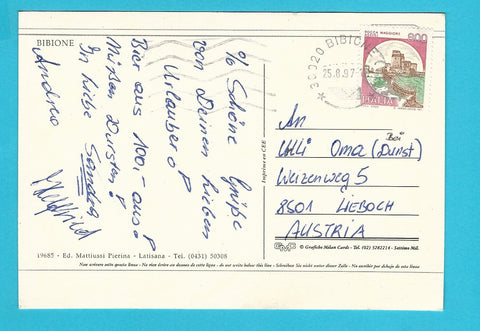 BIBIONE
% Schöne Grüße
von Deinen lieben
Urlauber
Bier aus 100,-
Durst
In Liebe Sandra
Andrea
30020 BIBIONE
25.8.97
ROCCA MAGGIORE
800
ITALIA
An
Oma (Durst)
Weizenweg 5
8501 LIEBOCH
AUSTRIA
Imprimé en CEE
GMC © Grafiche Milan Cards - Tel. (02) 5282214 - Settimo Mil.
19685 - Ed. Mattiussi Pierina - Latisana - Tel. (0431) 50308
Non scrivere sotto questa linea - Ne rien écrire au dessous de cette ligne - do not write below this line - Schreiben Sie nicht unter dieser Zeile - No escribir por debajo de esta linea.